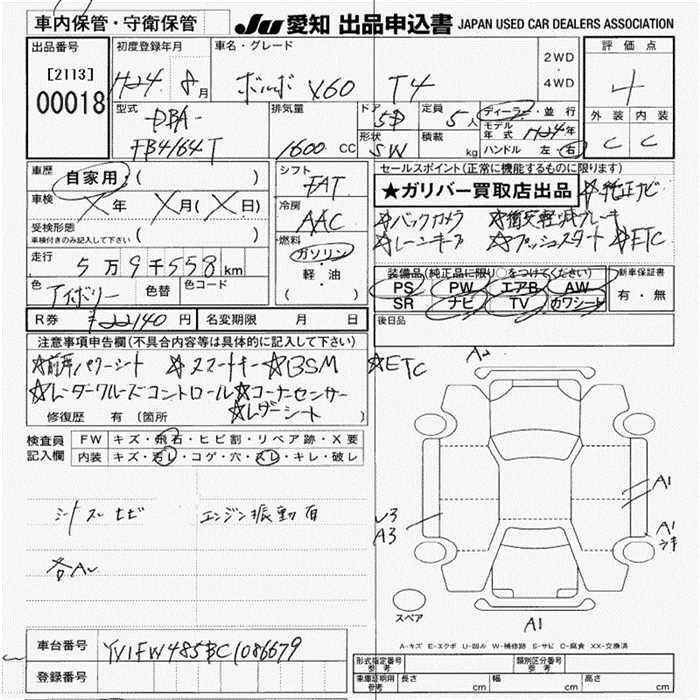 車内保管・守衛保管
JU 愛知 出品申込書 JAPAN USED CAR DEALERS ASSOCIATION
出品番号
[2113]
00018
初度登録年月
H24. 8月
車名・グレード
ボルボ V60 T4
2WD
・
4WD
評価点
4
外装 内装
C C
型式
DBA-
FB4164T
排気量
1600 CC
ドア
5D
定員
5人
形状
SW
積載
kg
ディーラー・並行
モデル年式 H24年
ハンドル 左・右
車歴
自家用 ( )
車検
年 月( 日)
受検形態
車検付きのみ記入して下さい ( )
走行
5万9千558km
色
アイボリー
色替
色コード
シフト
FAT
冷房
AAC
燃料
ガソリン
・
軽・油
( )
セールスポイント(正常に機能するものに限ります)
★ガリバー買取店出品 ☆純正ナビ
☆バックカメラ ☆衝突軽減ブレーキ
☆レーンキープ ☆プッシュスタート ☆ETC
装備品(純正品に限り○をつけてください)
PS PW エアB AW
SR ナビ TV カワシート
新車保証書
有・無
後日品
R券 ¥22140円 名変期限 月 日
注意事項申告欄(不具合内容等は具体的に記入して下さい)
☆前席パワーシート ☆スマートキー ☆BSM ☆ETC
☆レーダークルーズコントロール ☆コーナーセンサー
☆レザーシート
修復歴 有 (箇所
検査員記入欄
FW キズ・飛石・ヒビ割・リペア跡・X要
内装 キズ・汚レ・コゲ・穴・スレ・キレ・破レ
シートスレ エンジン振動有
各A
A1
A1
A3
A1
スペア
A-キズ E-エクボ U-凹ミ W-補修跡 S-サビ C-腐食 XX-交換済
車台番号 YV1FW485BC1086679
登録番号
形式指定番号 参考
類別区分番号 参考
車庫証明用 参考 長さ cm 幅 cm 高さ cm